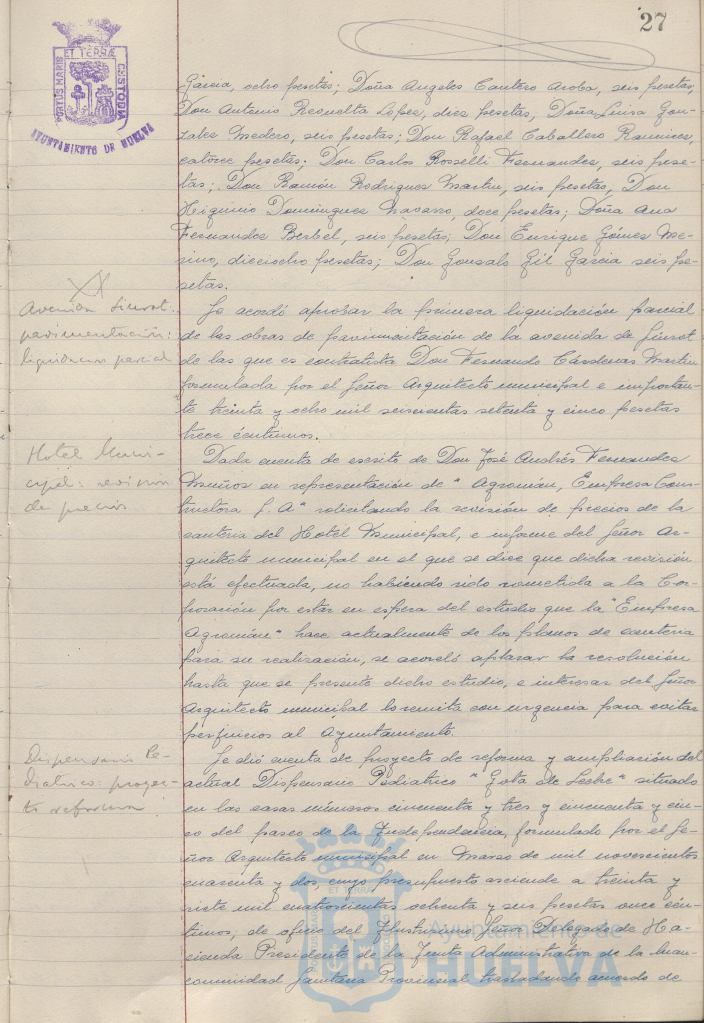 27
PORTUS MARIS ET TERRÆ CUSTODIA
AYUNTAMIENTO DE HUELVA
Garcia, ocho pesetas; Doña Angeles Cantero Aroba, seis pesetas;
Don Antonio Revuelta Lopez, diez pesetas, Doña Luisa Gon-
zalez Medero, seis pesetas; Don Rafael Caballero Ramirez,
catorce pesetas; Don Carlos Rosselli Fernandez, seis pese-
tas; Don Ramón Rodriguez Martin, seis pesetas, Don
Higinio Dominguez Navarro, doce pesetas; Doña Ana
Fernandez Berbel, seis pesetas; Don Enrique Gómez Me-
rino, dieciocho pesetas; Don Gonzalo Gil Garcia seis pe-
setas.
Avenida Siurot:
pavimentación:
liquidacion parcial
Se acordó aprobar la primera liquidación parcial
de las obras de pavimentación de la avenida de Siurot
de las que es contratista Don Fernando Cárdenas Martin
formulada por el Señor Arquitecto municipal e importan-
te treinta y ocho mil seiscientas setenta y cinco pesetas
trece céntimos.
Hotel Muni-
cipal: revision
de precios
Dada cuenta de escrito de Don José Andrés Fernandez
en representación de "Agromán, Empresa Cons-
tructora S. A" solicitando la revisión de precios de la
canteria del Hotel Municipal, e informe del Señor Ar-
quitecto municipal en el que se dice que dicha revisión
está efectuada, no habiendo sido sometida a la Cor-
poración por estar en espera del estudio que la "Empresa
Agromán" hace actualmente de los planos de canteria
para su realización, se acordó aplazar la resolución
hasta que se presente dicho estudio, e interesar del Señor
Arquitecto municipal lo remita con urgencia para evitar
perjuicios al Ayuntamiento.
Dispensario Pe-
diatrico: proyec-
to reforma
Se dió cuenta de proyecto de reforma y ampliación del
actual Dispensario Pediatrico "Gota de Leche" situado
en las casas números cincuenta y tres y cincuenta y cin-
co del paseo de la Independencia, formulado por el Se-
ñor Arquitecto municipal en Marzo de mil novecientos
cuarenta y dos, cuyo presupuesto asciende a treinta y
siete mil cuatrocientas ochenta y seis pesetas once cén-
timos, de oficio del Ilustrisimo Señor Delegado de Ha-
cienda Presidente de la Junta Administrativa de la Man-
comunidad Sanitaria Provincial trasladando acuerdo de
Ayuntamiento de
HUELVA